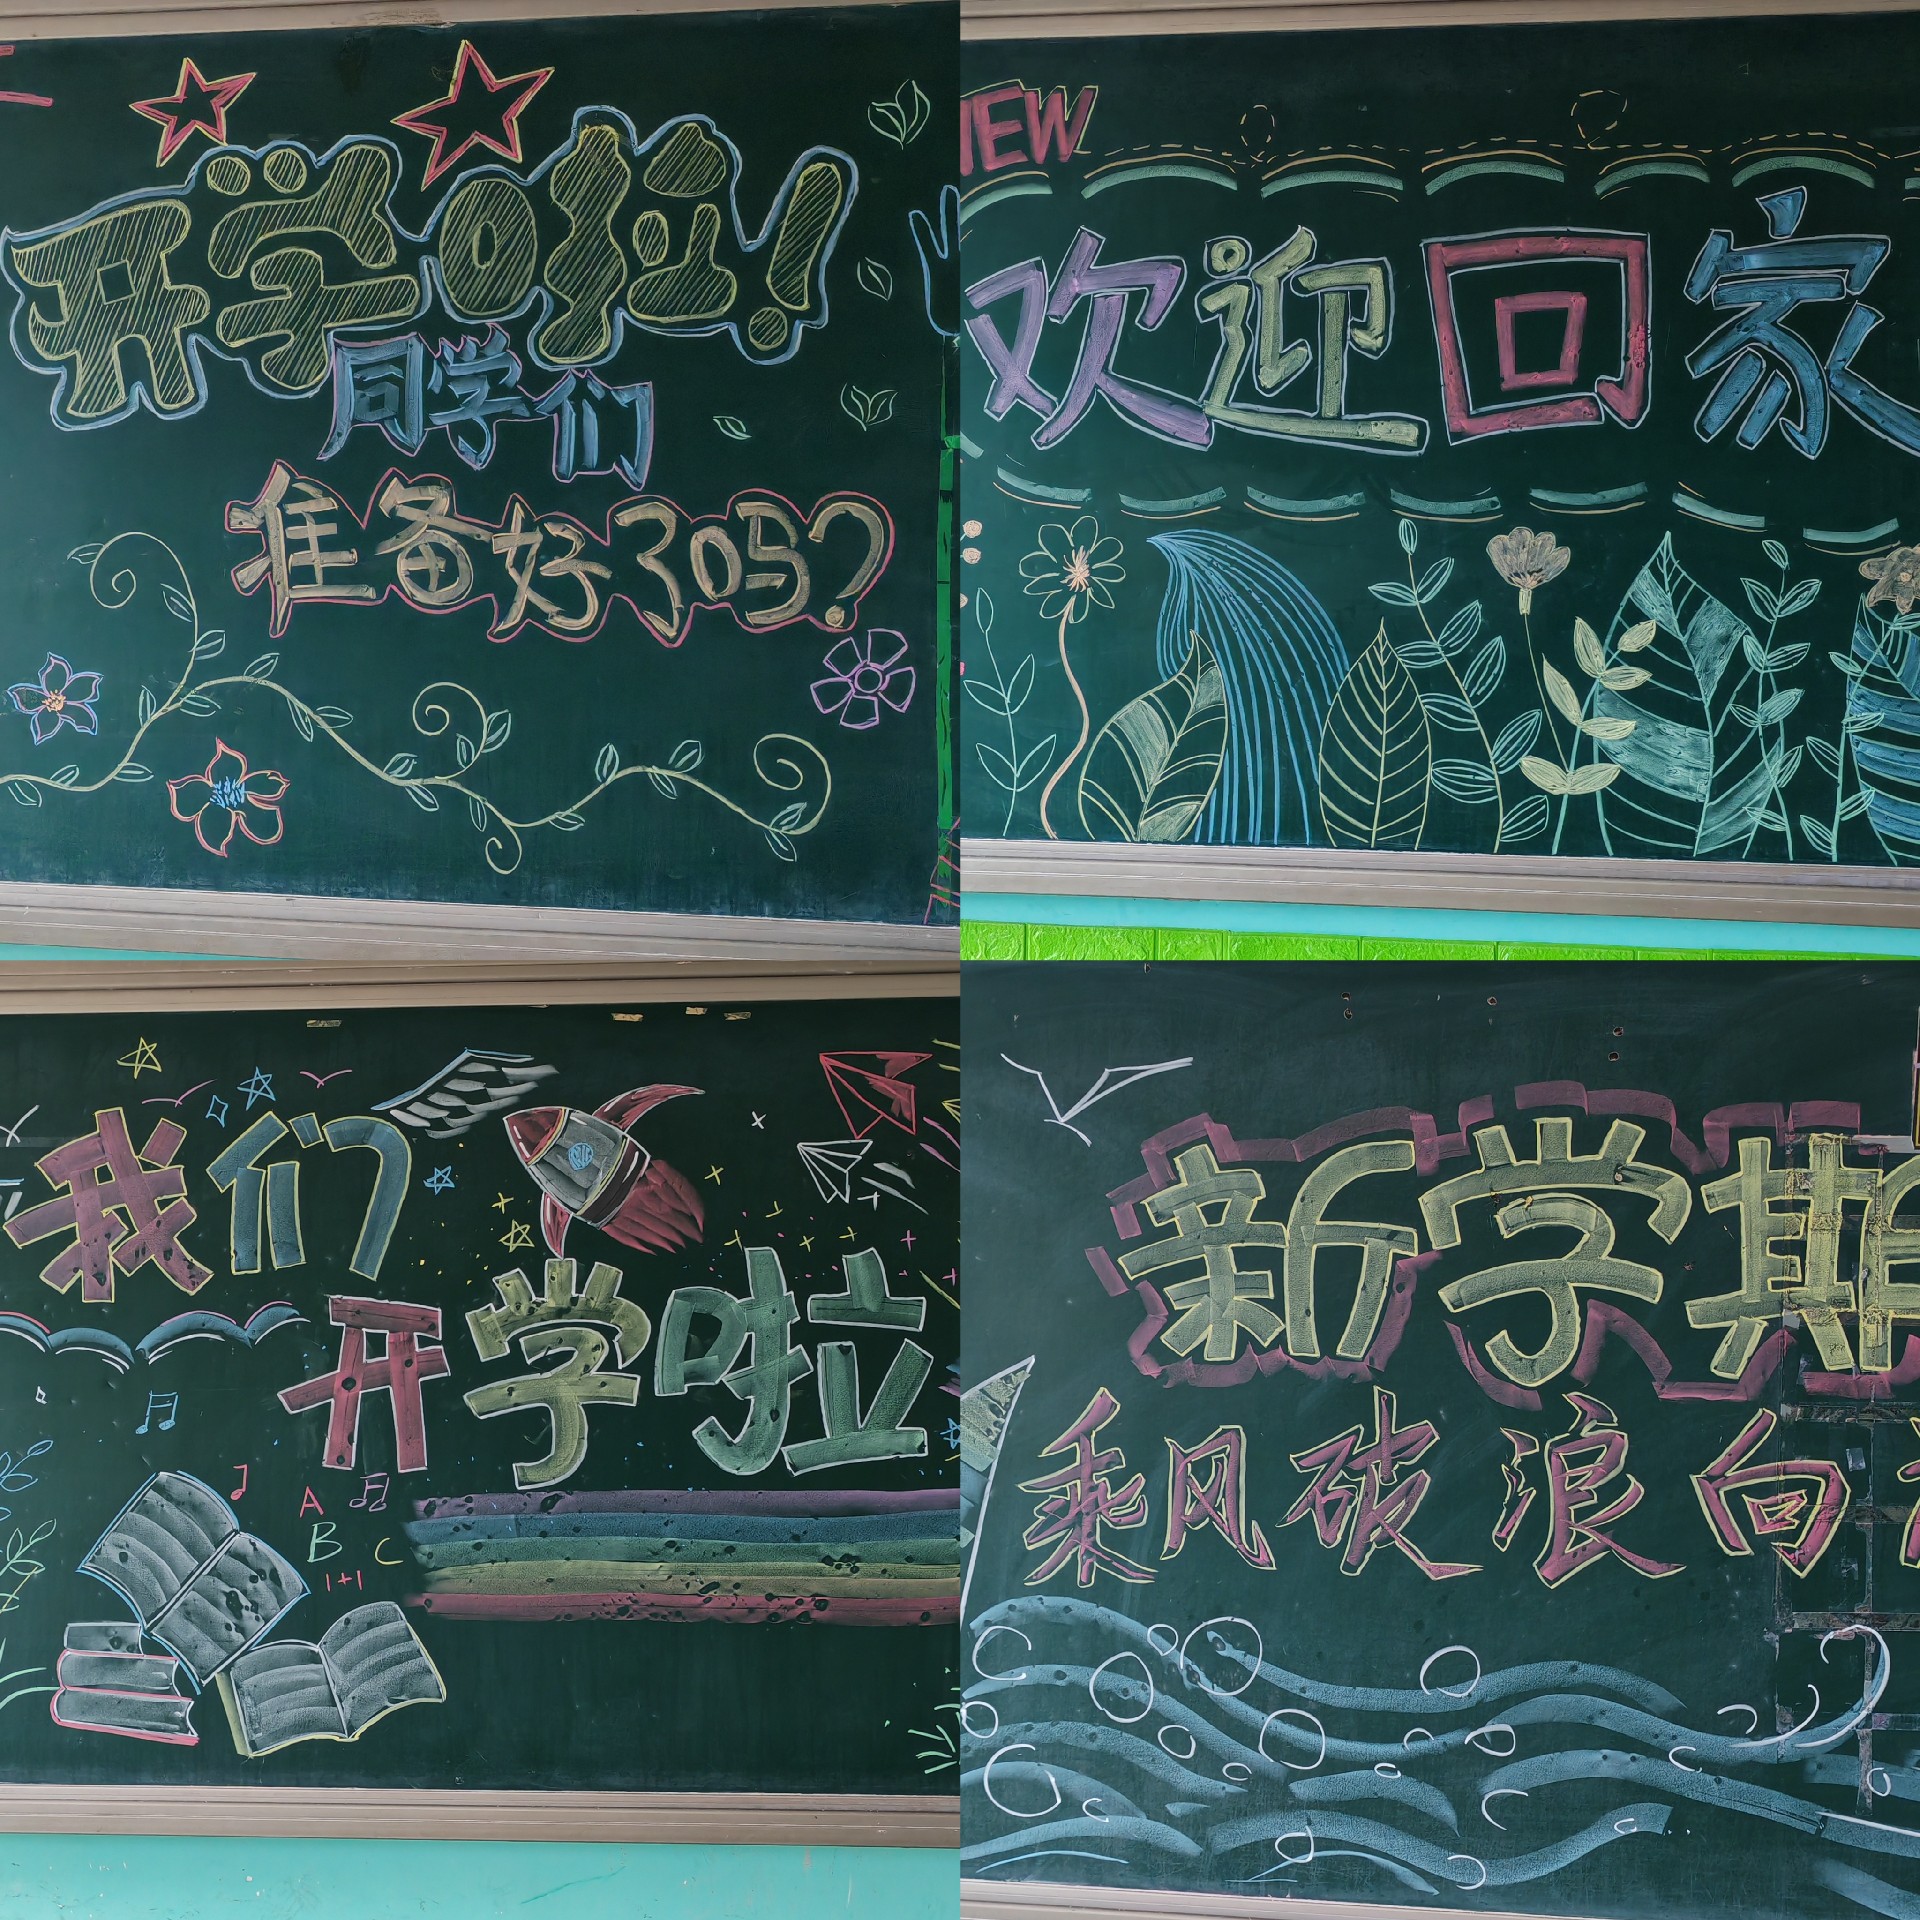 开学啦!
同学们
准备好了吗?
EW
欢迎回家
我们
开学啦
A
B C
1+1
新学期
乘风破浪向